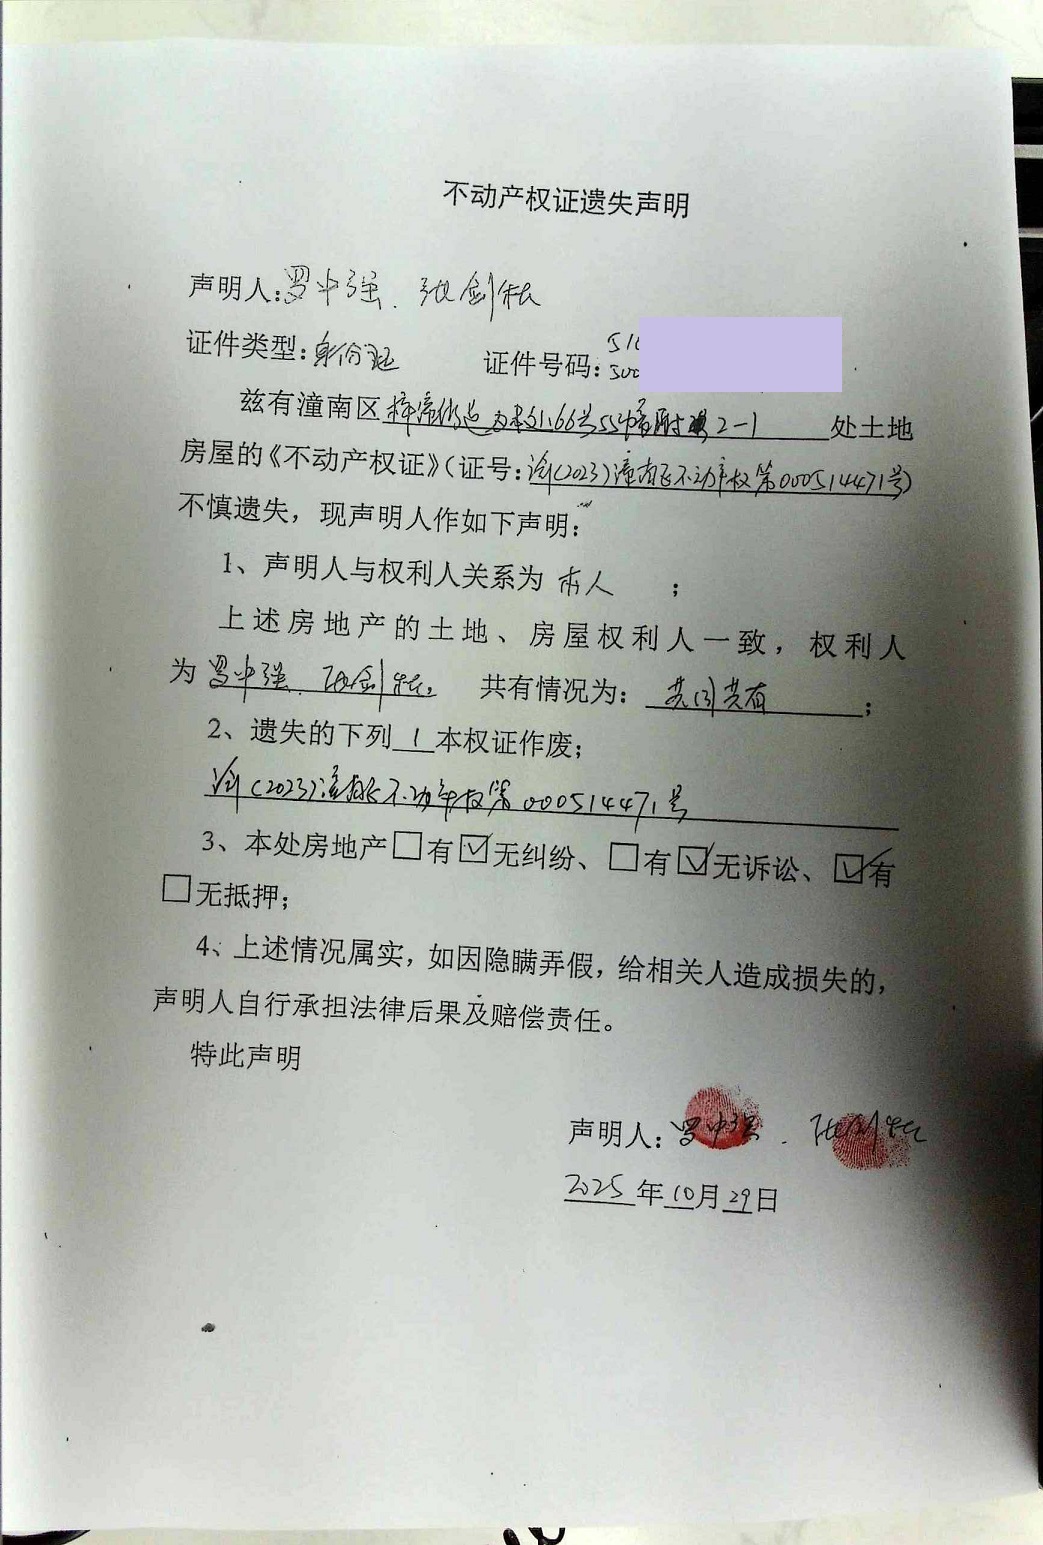 不动产权证遗失声明
声明人:罗中强、张剑
证件类型:身份证 证件号码:510
500
兹有潼南区梓潼街道 66号 2-1 处土地
房屋的《不动产权证》(证号:渝(2023)潼南区不动产权第000514471号)
不慎遗失,现声明人作如下声明:
1、声明人与权利人关系为 本人 ;
上述房地产的土地、房屋权利人一致,权利人
为 罗中强、张剑 共有情况为: 共同共有 ;
2、遗失的下列 1 本权证作废;
渝(2023)潼南区不动产权第000514471号
3、本处房地产□有☑无纠纷、□有☑无诉讼、☑有
□无抵押;
4、上述情况属实,如因隐瞒弄假,给相关人造成损失的,
声明人自行承担法律后果及赔偿责任。
特此声明
声明人:罗中强、张剑
2025年10月29日